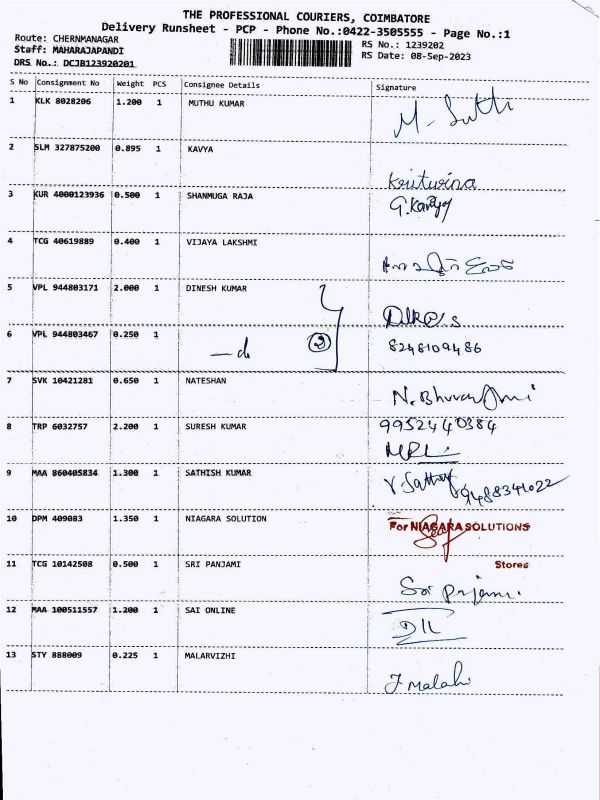 THE PROFESSIONAL COURIERS, COIMBATORE
Delivery Runsheet - PCP - Phone No.:0422-3505555 - Page No.:1
Route: CHERNMANAGAR
Staff: MAHARAJAPANDI
RS No.: 1239202
DRS No.: DCJB123920201
RS Date: 08-Sep-2023
S No Consignment No Weight PCS Consignee Details Signature
1 KLK 8028206 1.200 1 MUTHU KUMAR
2 SLM 327875200 0.895 1 KAVYA
3 KUR 4000123936 0.500 1 SHANMUGA RAJA G.Kavya
4 TCG 40619889 0.400 1 VIJAYA LAKSHMI
5 VPL 944803171 2.000 1 DINESH KUMAR
6 VPL 944803467 0.250 1 —do 2 8248109486
7 SVK 10421281 0.650 1 NATESHAN
8 TRP 6032757 2.200 1 SURESH KUMAR 9952440384
9 MAA 860405834 1.300 1 SATHISH KUMAR 9488341022
10 DPM 409083 1.350 1 NIAGARA SOLUTION For NIAGARA SOLUTIONS
Stores
11 TCG 10142508 0.500 1 SRI PANJAMI
12 MAA 100511557 1.200 1 SAI ONLINE
13 STY 888009 0.225 1 MALARVIZHI